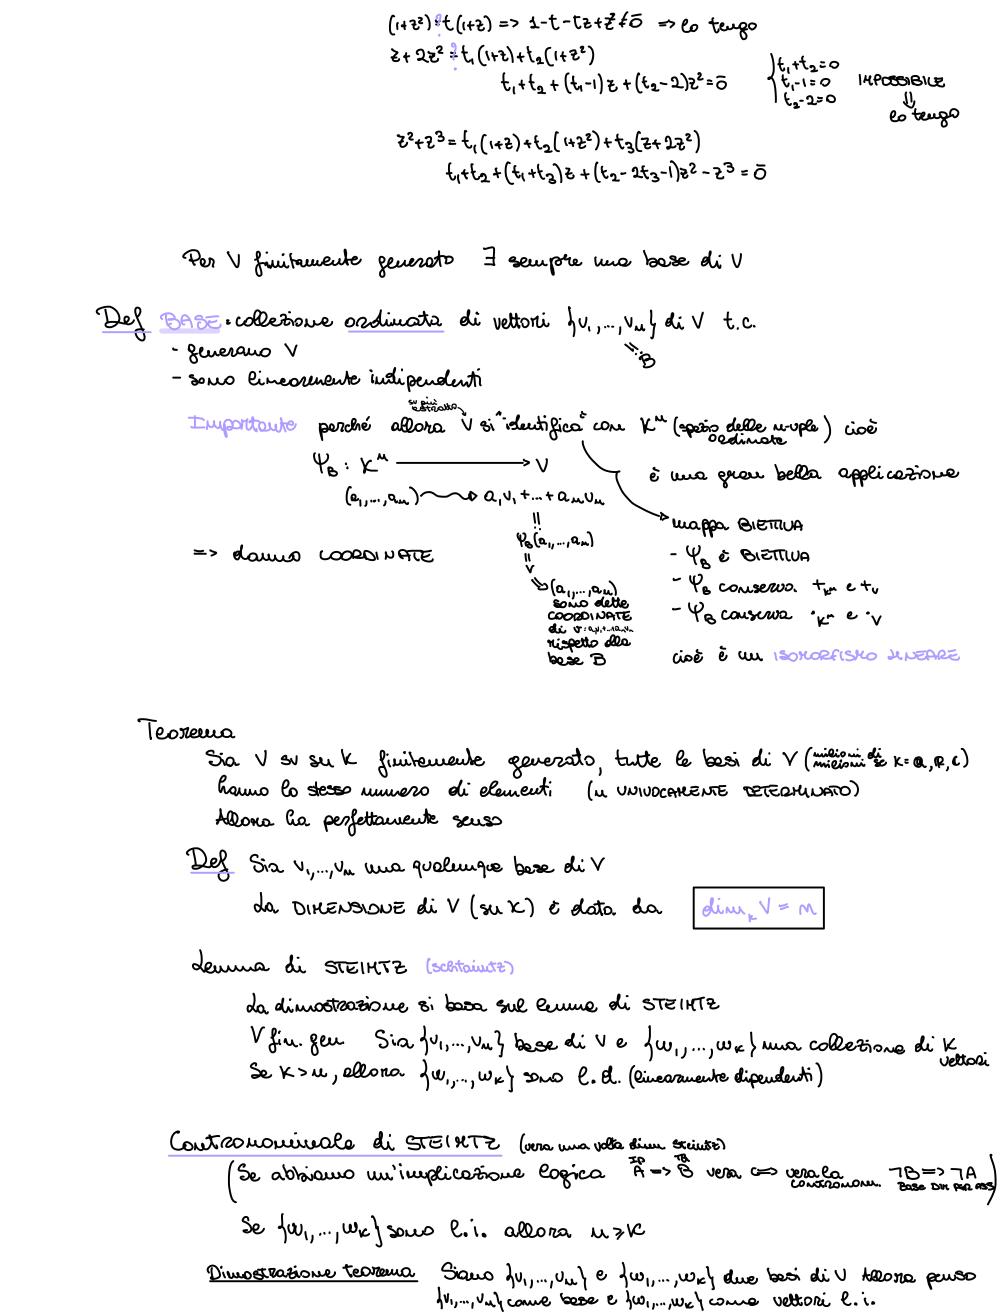 (1+z²) ?= t(1+z) => 1-t-tz+z² ≠ 0̄ => lo tengo
z+2z² ?= t₁(1+z)+t₂(1+z²)
t₁+t₂+(t₁-1)z+(t₂-2)z²=0̄
{t₁+t₂=0
t₁-1=0 IMPOSSIBILE
t₂-2=0
⇓
lo tengo
z²+z³=t₁(1+z)+t₂(1+z²)+t₃(z+2z²)
t₁+t₂+(t₁+t₃)z+(t₂-2t₃-1)z²-z³=0̄
Per V finitamente generato ∃ sempre una base di V
Def BASE: collezione ordinata di vettori {v₁,...,vₙ} di V t.c.
=:B
- generano V
- sono linearmente indipendenti
su più astratto
Importante perché allora V si "identifica" con Kⁿ (spazio delle n-uple ordinate) cioè
Ψ_B : Kⁿ → V
è una gran bella applicazione
(a₁,...,aₙ) ⇝ a₁v₁+...+aₙvₙ
mappa BIETTIVA
=
Ψ_B(a₁,...,aₙ)
=> danno COORDINATE
- Ψ_B è BIETTIVA
=
v
- Ψ_B conserva +_Kⁿ e +_V
=> (a₁,...,aₙ)
sono dette
COORDINATE
di v=a₁v₁+...+aₙvₙ
rispetto alla
base B
- Ψ_B conserva ·_Kⁿ e ·_V
cioè è un ISOMORFISMO LINEARE
Teorema
Sia V sv su K finitamente generato, tutte le basi di V (milioni di milioni se K=Q,R,C)
hanno lo stesso numero di elementi (n UNIVOCAMENTE DETERMINATO)
Allora ha perfettamente senso
Def Sia v₁,...,vₙ una qualunque base di V
La DIMENSIONE di V (su K) è data da dim_K V = n
Lemma di STEINTZ (schtaintz)
La dimostrazione si basa sul lemma di STEINTZ
V fin. gen Sia {v₁,...,vₙ} base di V e {w₁,...,wₖ} una collezione di K vettori
Se K>n, allora {w₁,...,wₖ} sono l.d. (linearmente dipendenti)
Contronominale di STEINTZ (vera una volta dim Steintz)
(Se abbiamo un'implicazione logica A => B vera <=> vera la contronom. ¬B => ¬A)
IP TS
BASE DIM PER ASS
Se {w₁,...,wₖ} sono l.i. allora n≥K
Dimostrazione teorema Siano {v₁,...,vₙ} e {w₁,...,wₖ} due basi di V Allora penso
{v₁,...,vₙ} come base e {w₁,...,wₖ} come vettori l.i.